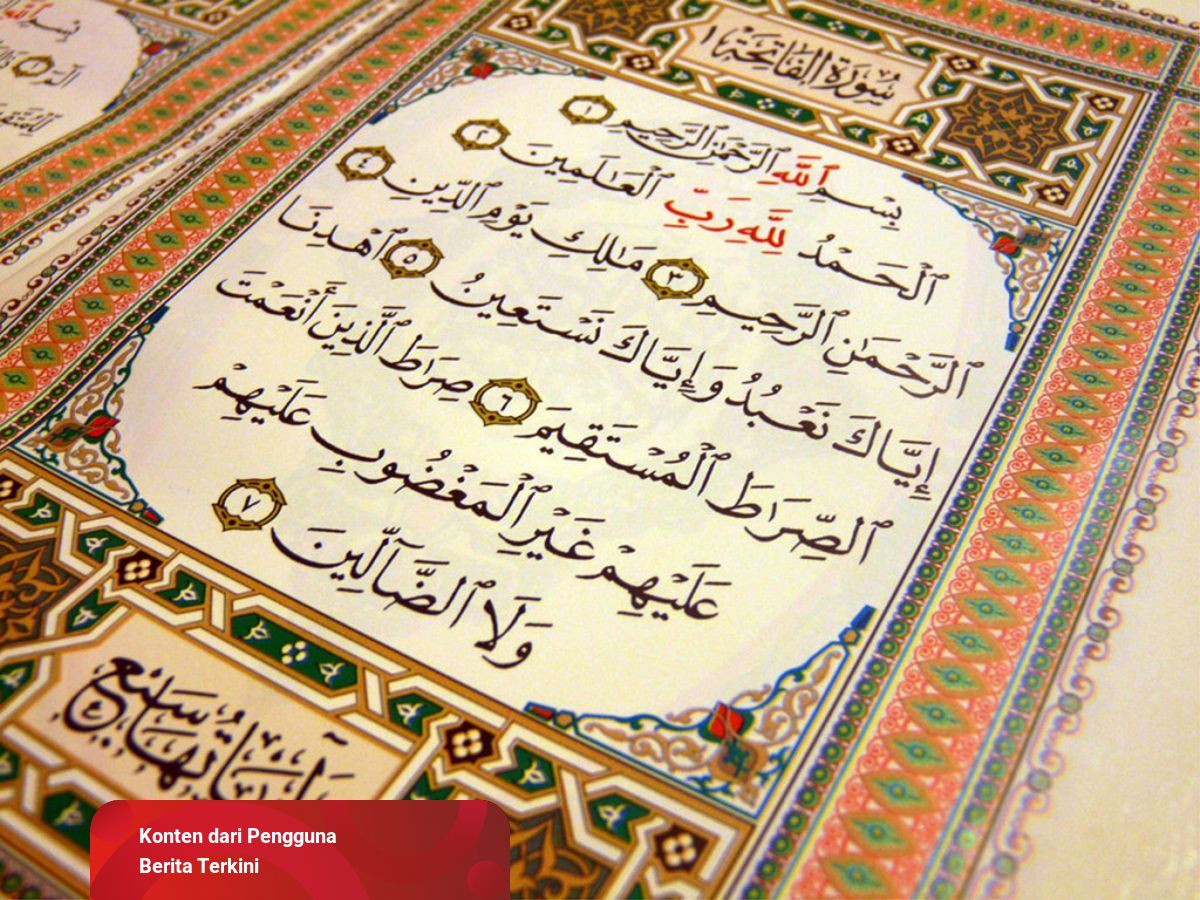 سُورَةُ الفَاتِحَةِ ١
بِسْمِ ٱللَّهِ ٱلرَّحْمَٰنِ ٱلرَّحِيمِ ١
ٱلْحَمْدُ لِلَّهِ رَبِّ ٱلْعَٰلَمِينَ ٢
ٱلرَّحْمَٰنِ ٱلرَّحِيمِ ٣ مَٰلِكِ يَوْمِ ٱلدِّينِ ٤
إِيَّاكَ نَعْبُدُ وَإِيَّاكَ نَسْتَعِينُ ٥ ٱهْدِنَا
ٱلصِّرَٰطَ ٱلْمُسْتَقِيمَ ٦ صِرَٰطَ ٱلَّذِينَ أَنْعَمْتَ
عَلَيْهِمْ غَيْرِ ٱلْمَغْضُوبِ عَلَيْهِمْ
وَلَا ٱلضَّآلِّينَ ٧
سَبْعٌ
Konten dari Pengguna
Berita Terkini